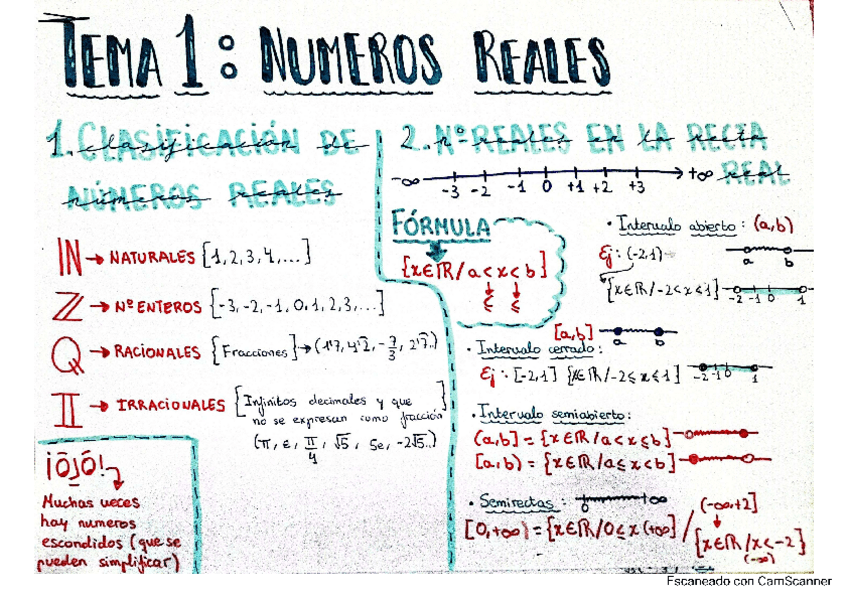 TEMA 1: NUMEROS REALES
1. CLASIFICACIÓN DE
NÚMEROS REALES
IN → NATURALES [1, 2, 3, 4, ...]
Z → Nº ENTEROS {-3, -2, -1, 0, 1, 2, 3, ...]
Q → RACIONALES {Fracciones} →
II → IRRACIONALES [Infinitos decimales y que
no se expresan como fracción]
(π, e, π/4, √5, 5e, -2√5..)
¡OJO!
Muchas veces
hay numeros
escondidos (que se
pueden simplificar)
2. Nº REALES EN LA RECTA
REAL
-∞ -3 -2 -1 0 +1 +2 +3 +∞
FÓRMULA
{x∈ℝ/a<x<b]
≤ ≤
· Intervalo abierto: (a,b)
a b
Ej: (-2,1)
{x∈ℝ/-2<x≤1] -2 -1 0 1
[a,b] a b
· Intervalo cerrado:
Ej: [-2,1] {x∈ℝ/-2≤x≤1] -2 -1 0 1
· Intervalo semiabierto:
(a,b] = {x∈ℝ/a<x≤b]
[a,b) = {x∈ℝ/a≤x<b]
· Semirectas: 0 +∞
[0,+∞) = {x∈ℝ/0≤x(+∞] / (-∞,+2]
{x∈ℝ/x<-2}
(-∞)
Escaneado con CamScanner